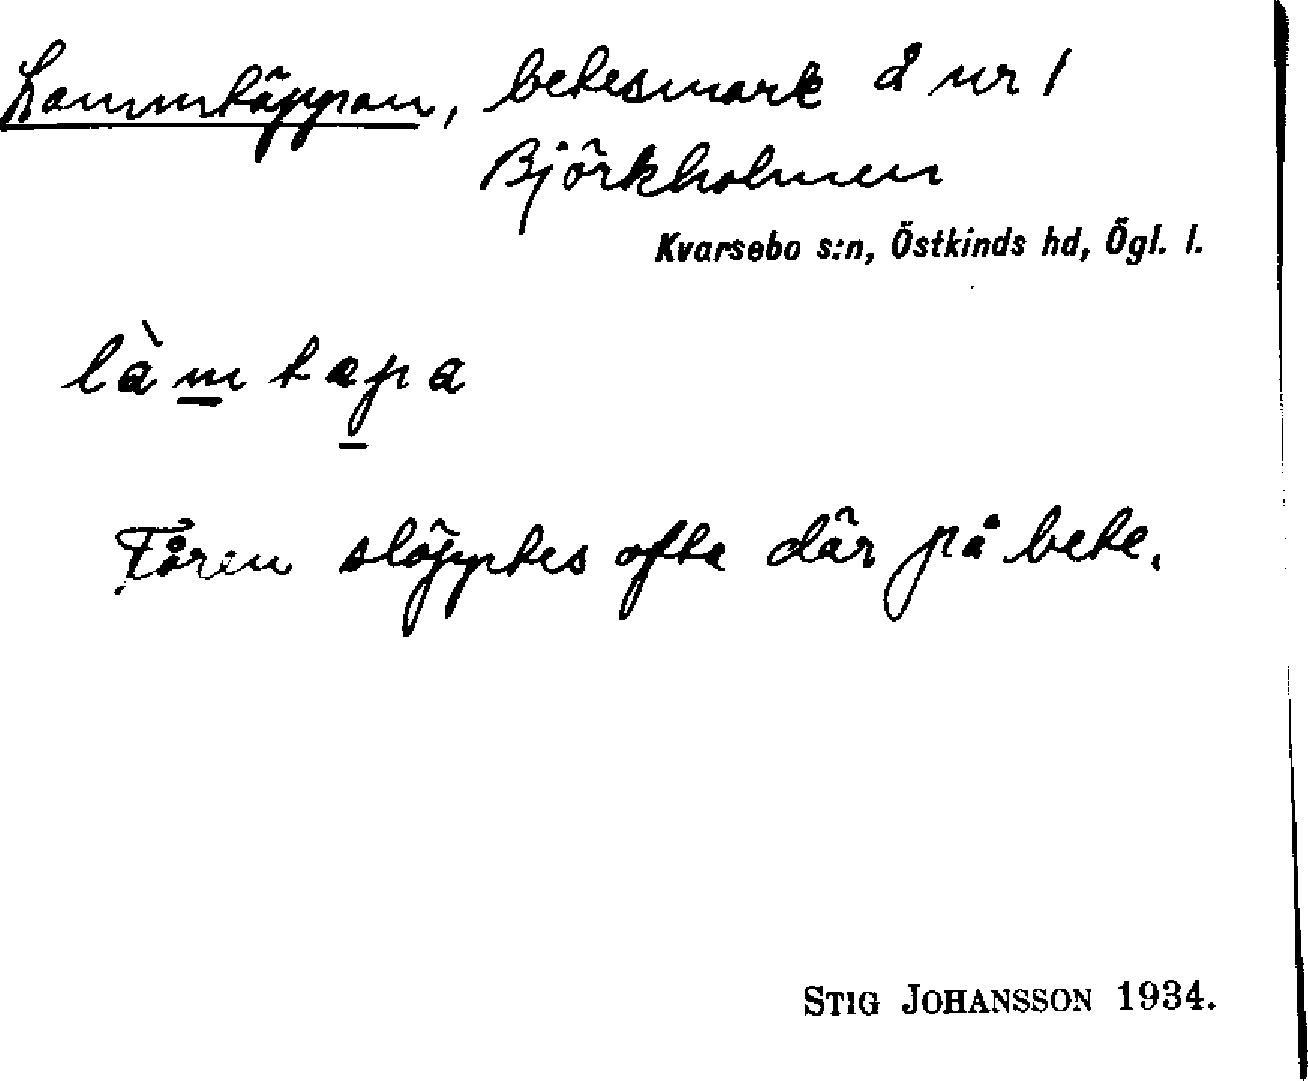 Lammtäppan, betesmark å nr 1
Björkholmen
Kvarsebo s:n, Östkinds hd, Ögl. l.
làmtæpa
Fåren släpptes ofta där på bete.
STIG JOHANSSON 1934.